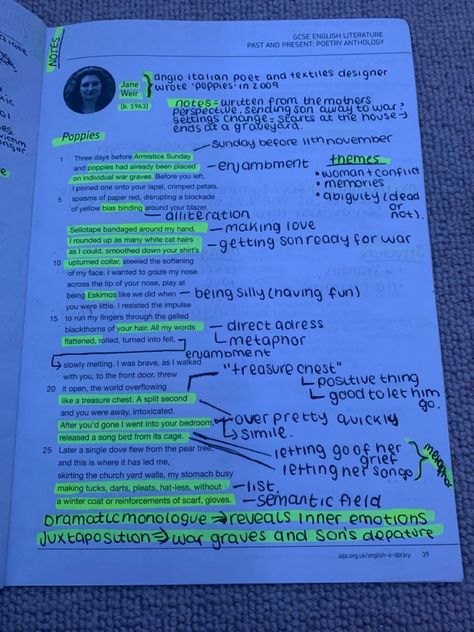 GCSE ENGLISH LITERATURE
PAST AND PRESENT: POETRY ANTHOLOGY
NOTES
Jane
Weir
(b. 1963)
anglo italian poet and textiles designer
wrote 'poppies' in 2009
notes = written from the mothers
perspective. sending son away to war?
settings change = starts at the house →
ends at a graveyard.
Poppies
sunday before 11th november
1 Three days before Armistice Sunday
and poppies had already been placed
on individual war graves. Before you left,
I pinned one onto your lapel, crimped petals,
5 spasms of paper red, disrupting a blockade
of yellow bias binding around your blazer.
enjambment
themes
• woman + conflict
• memories
• abiguity (dead
or
not).
alliteration
Sellotape bandaged around my hand,
I rounded up as many white cat hairs
as I could, smoothed down your shirt's
10 upturned collar, steeled the softening
of my face. I wanted to graze my nose
across the tip of your nose, play at
being Eskimos like we did when
you were little. I resisted the impulse
15 to run my fingers through the gelled
blackthorns of your hair. All my words
flattened, rolled, turned into felt,
making love
getting son ready for war
being silly (having fun)
direct adress
metaphor
enjambment
slowly melting. I was brave, as I walked
with you, to the front door, threw
20 it open, the world overflowing
like a treasure chest. A split second
and you were away, intoxicated.
After you'd gone I went into your bedroom,
released a song bird from its cage.
25 Later a single dove flew from the pear tree,
and this is where it has led me,
skirting the church yard walls, my stomach busy
making tucks, darts, pleats, hat-less, without
a winter coat or reinforcements of scarf, gloves.
"treasure chest"
positive thing
good to let him
go.
over pretty quickly
simile.
letting go of her
grief
letting her son go
metaphor
list
semantic field
Dramatic monologue ⇒ reveals inner emotions
Juxtaposition ⇒ war graves and son's depature
aqa.org.uk/english-e-library 39